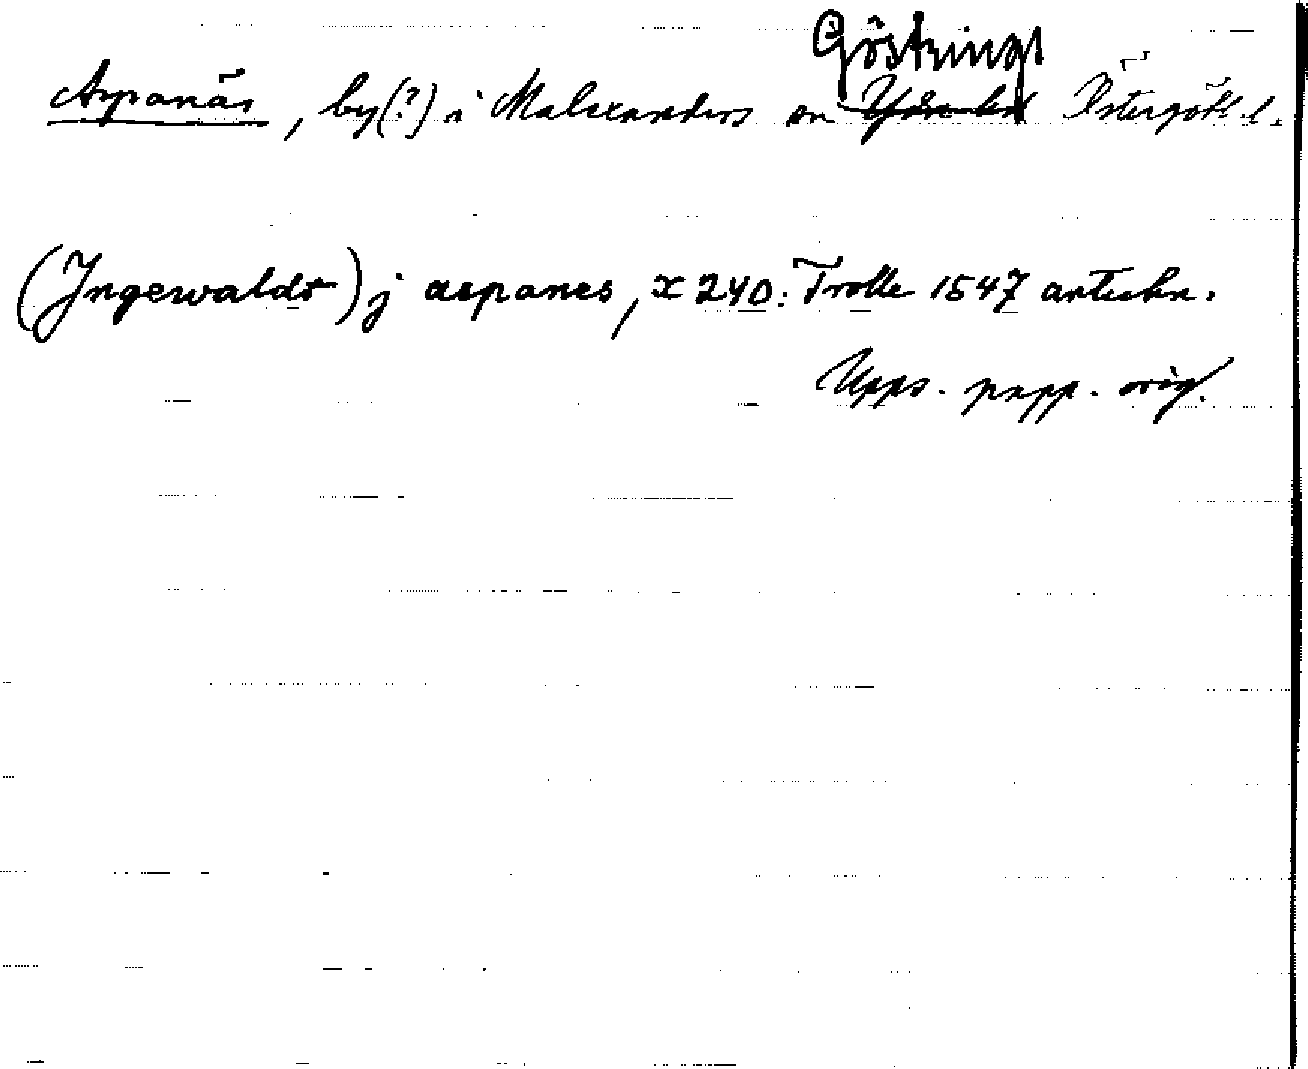 Göstrings
Aspanäs, by(?) i Malexanders sn Ydre hd Östergötl. l.
(Ingewaldr) j aspanes, X 240: Trolle 1547 anteckn.
Upps. papp. orig.